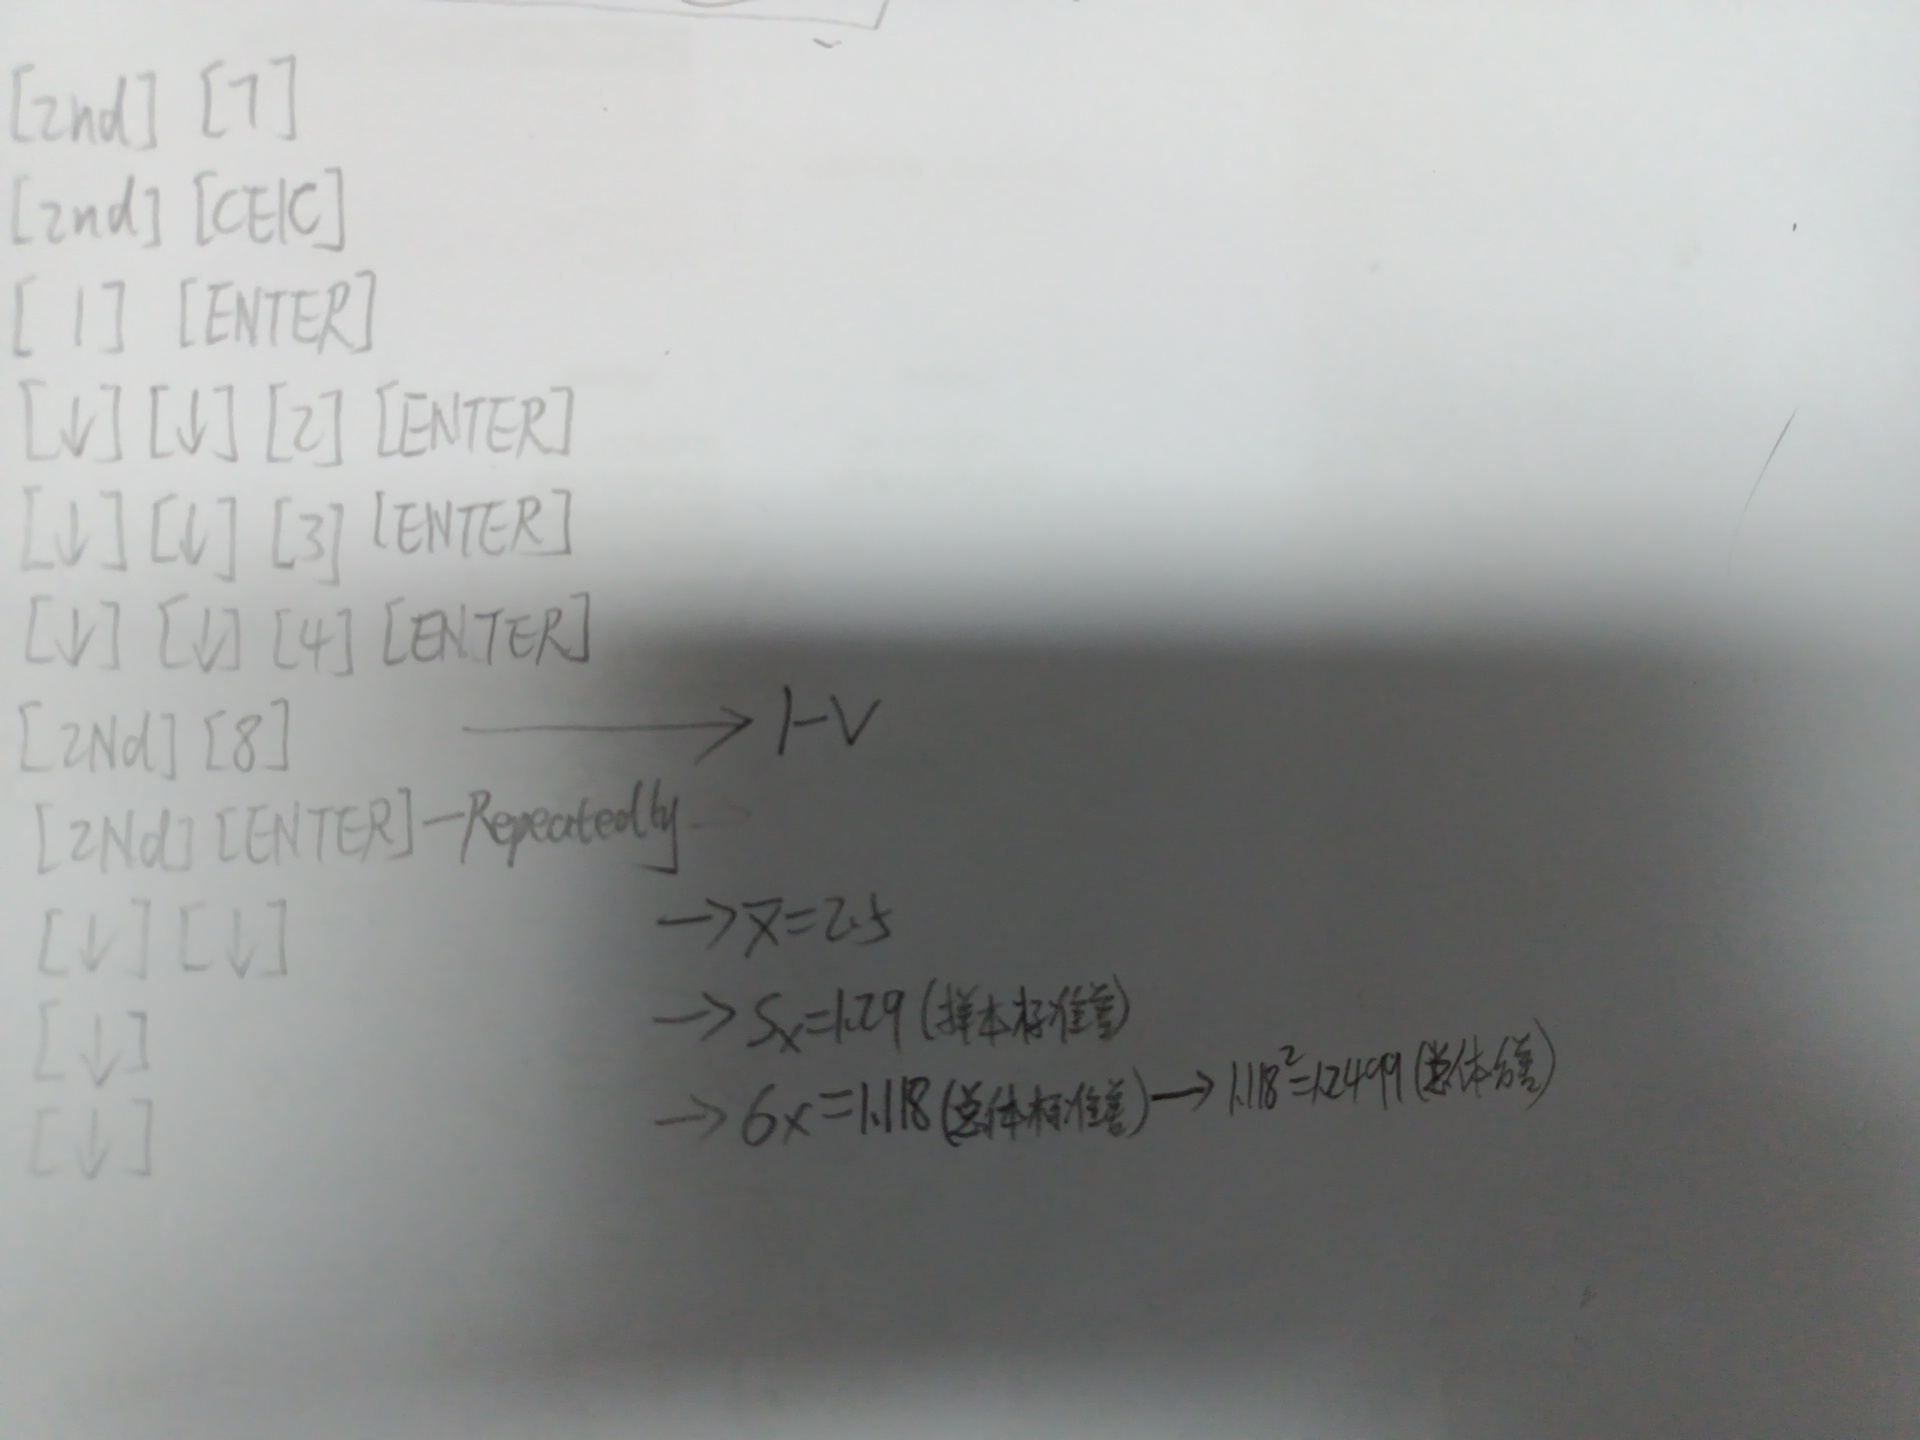 [2nd] [7]
[2nd] [CE|C]
[1] [ENTER]
[↓] [↓] [2] [ENTER]
[↓] [↓] [3] [ENTER]
[↓] [↓] [4] [ENTER]
[2Nd] [8] → 1-V
[2Nd] [ENTER] - Repeatedly
[↓] [↓] → x̄=2.5
[↓] → Sx=1.29 (样本标准差)
[↓] → 6x=1.118 (总体标准差) → 1.118²=1.2499 (总体方差)